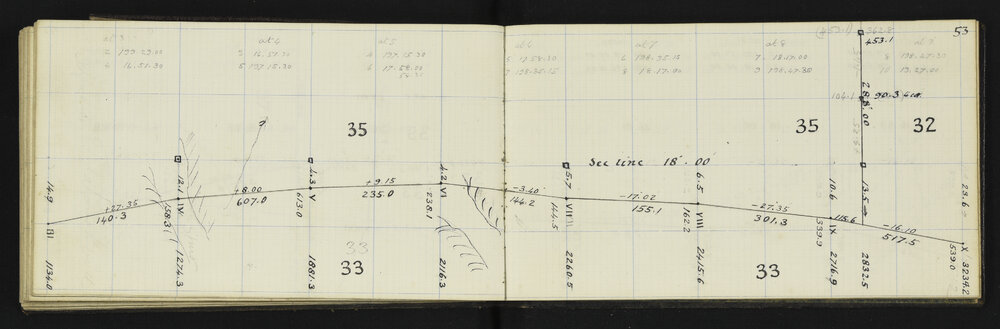 53
at 3
2 199.29.00
4 16.51.30
at 4
3 16.51.30
5 197.15.30
at 5
4 197.15.30
6 17.58.00
at 6
5 17.58.30
7 198.35.15
at 7
6 198.35.15
8 18.17.00
at 8
7 18.17.00
9 198.47.30
at 9
8 198.47.30
10 19.27.00
(453.1)
362.8
453.1
104.1
90.3
288.00
35
35
32
See line 18° 00'
14.9
+27.35
140.3
III
1134.0
58.3
12.1
IV
1274.3
+8.00
607.0
4.3
V
613.0
1881.3
+9.15
235.0
4.2
VI
238.1
2116.3
-3.40
144.2
5.7
VII
144.5
2260.5
-17.02
155.1
6.5
VIII
162.2
2415.6
-27.35
301.3
10.6
IX
339.9
2716.9
115.6
13.5
2832.5
-16.10
517.5
23.6
X
539.0
3234.2
33
33
33